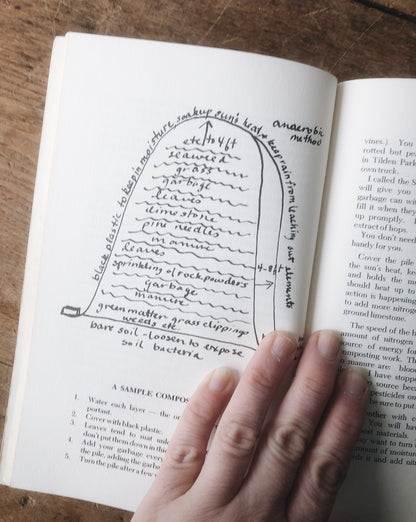 anaerobic
method
black plastic to keep in moisture, soak up sun's heat, & keep rain from leaching out elements
etc to 4 ft
seaweed
grass
garbage
leaves
limestone
pine needles
manure
leaves
sprinkling of rock powders
4-8ft
garbage
manure
green matter grass clippings
weeds etc.
bare soil - loosen to expose
soil bacteria
A SAMPLE COMPOS
1. Water each layer — the
portant.
2. Cover with black plastic.
3. Leaves tend to mat
don't put them down in thi
4. Add your garbage every
the pile, adding the garb
5. Turn the pile after a few
vines.) You
rotted but pe
in Tilden Park
own truck.
I called the S
will give you
garbage can wit
fill it when they
up promptly.
extract of hops.
You don't need
handy for you.
Cover the pile
the sun's heat,
and holds the mo
should heat up to
action is happening
to add more nitroge
ground limestone.
The speed of the
amount of nitrogen
source of energy
composting work. The
manure are: blood
have stopped
source because
pesticides
be sure to put
other with
You will have
most materials.
may want to turn
amount of moisture
it and add nit